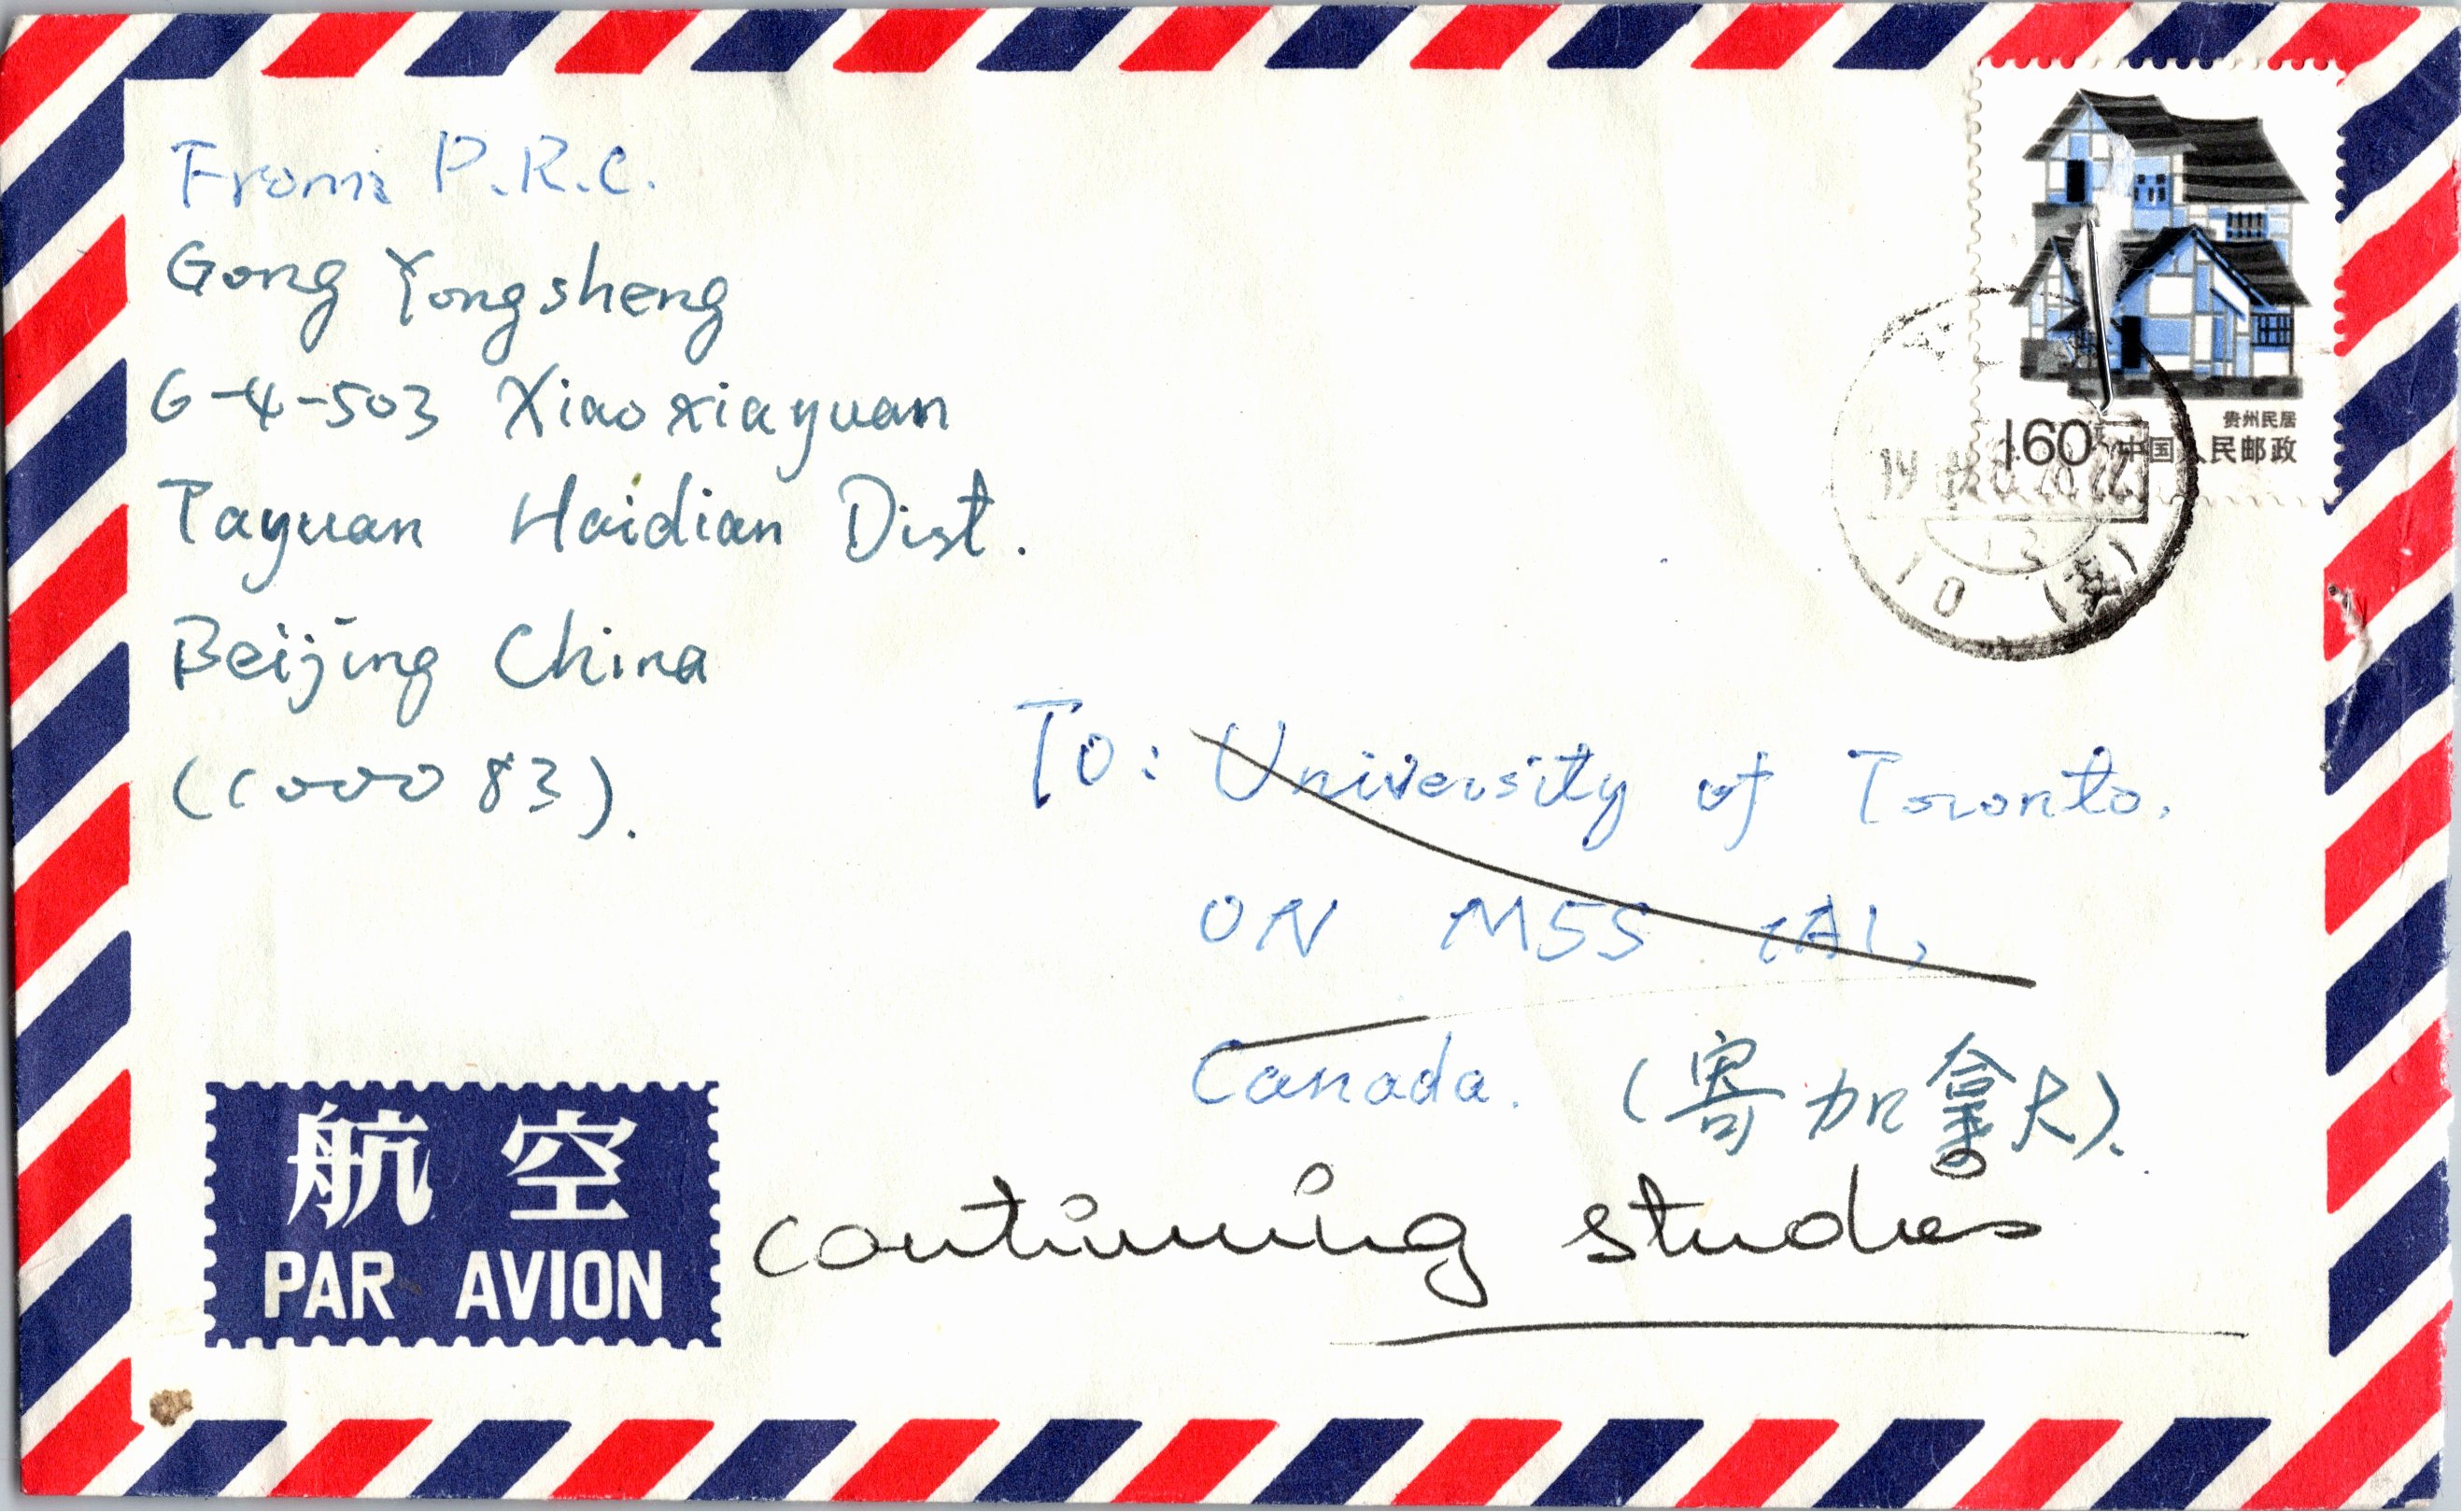 From: P.R.C.
Gong Yongsheng
6-4-503 Xiaoxiayuan
Tayuan Haidian Dist.
Beijing China
(100083).
贵州民居
160 中国人民邮政
19
13
10 (支)
To: University of Toronto,
ON M5S 1A1,
Canada. (寄加拿大).
continuing studies
航空
PAR AVION